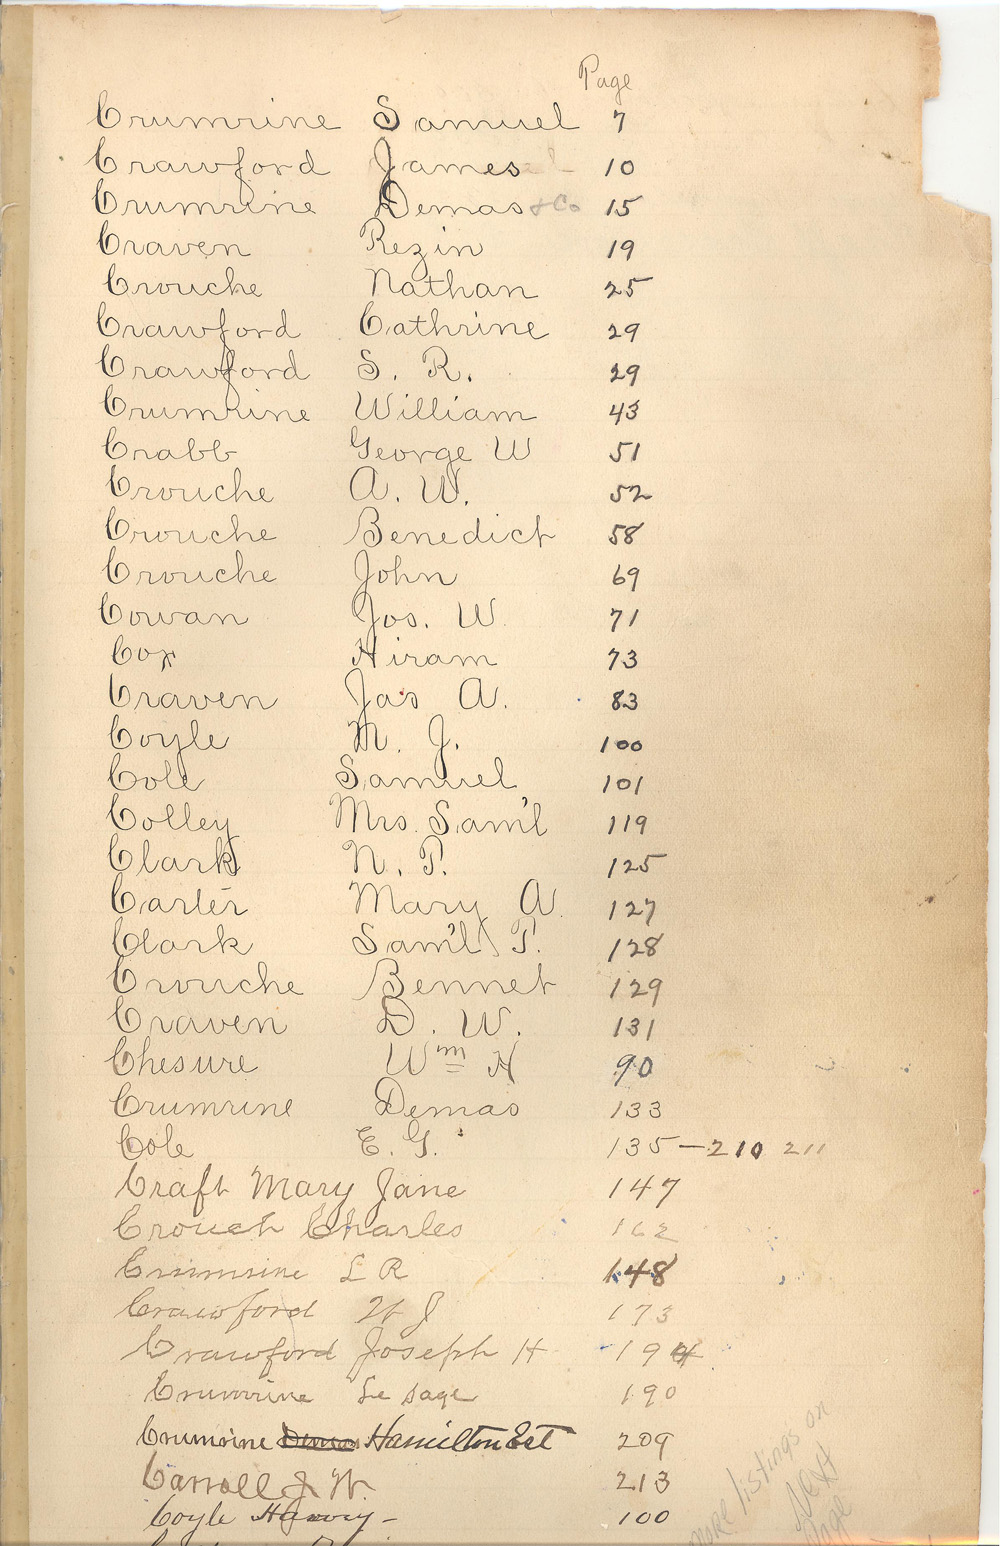 Page
Crumrine Samuel 7
Crawford James 10
Crumrine Demas & Co 15
Craven Rezin 19
Crouche Nathan 25
Crawford Cathrine 29
Crawford S. R. 29
Crumrine William 43
Crabb George W 51
Crouche A. W. 52
Crouche Benedict 58
Crouche John 69
Cowan Jos. W. 71
Cox Hiram 73
Craven Jas A. 83
Coyle M. J. 100
Cole Samuel 101
Colley Mrs. Sam'l 119
Clark N. P. 125
Carter Mary A. 127
Clark Sam'l P. 128
Crouche Bennet 129
Craven D. W. 131
Chesure Wm H 90
Crumrine Demas 133
Cole E. G. 135 - 210 211
Craft Mary Jane 147
Crouch Charles 162
Crumrine L R 148
Crawford W J 173
Crawford Joseph H 194
Crumrine Le Sage 190
Crumrine Demas Hamilton Est 209
Carroll J. W. 213
Coyle Harvey - 100
more listings on
Next
Page